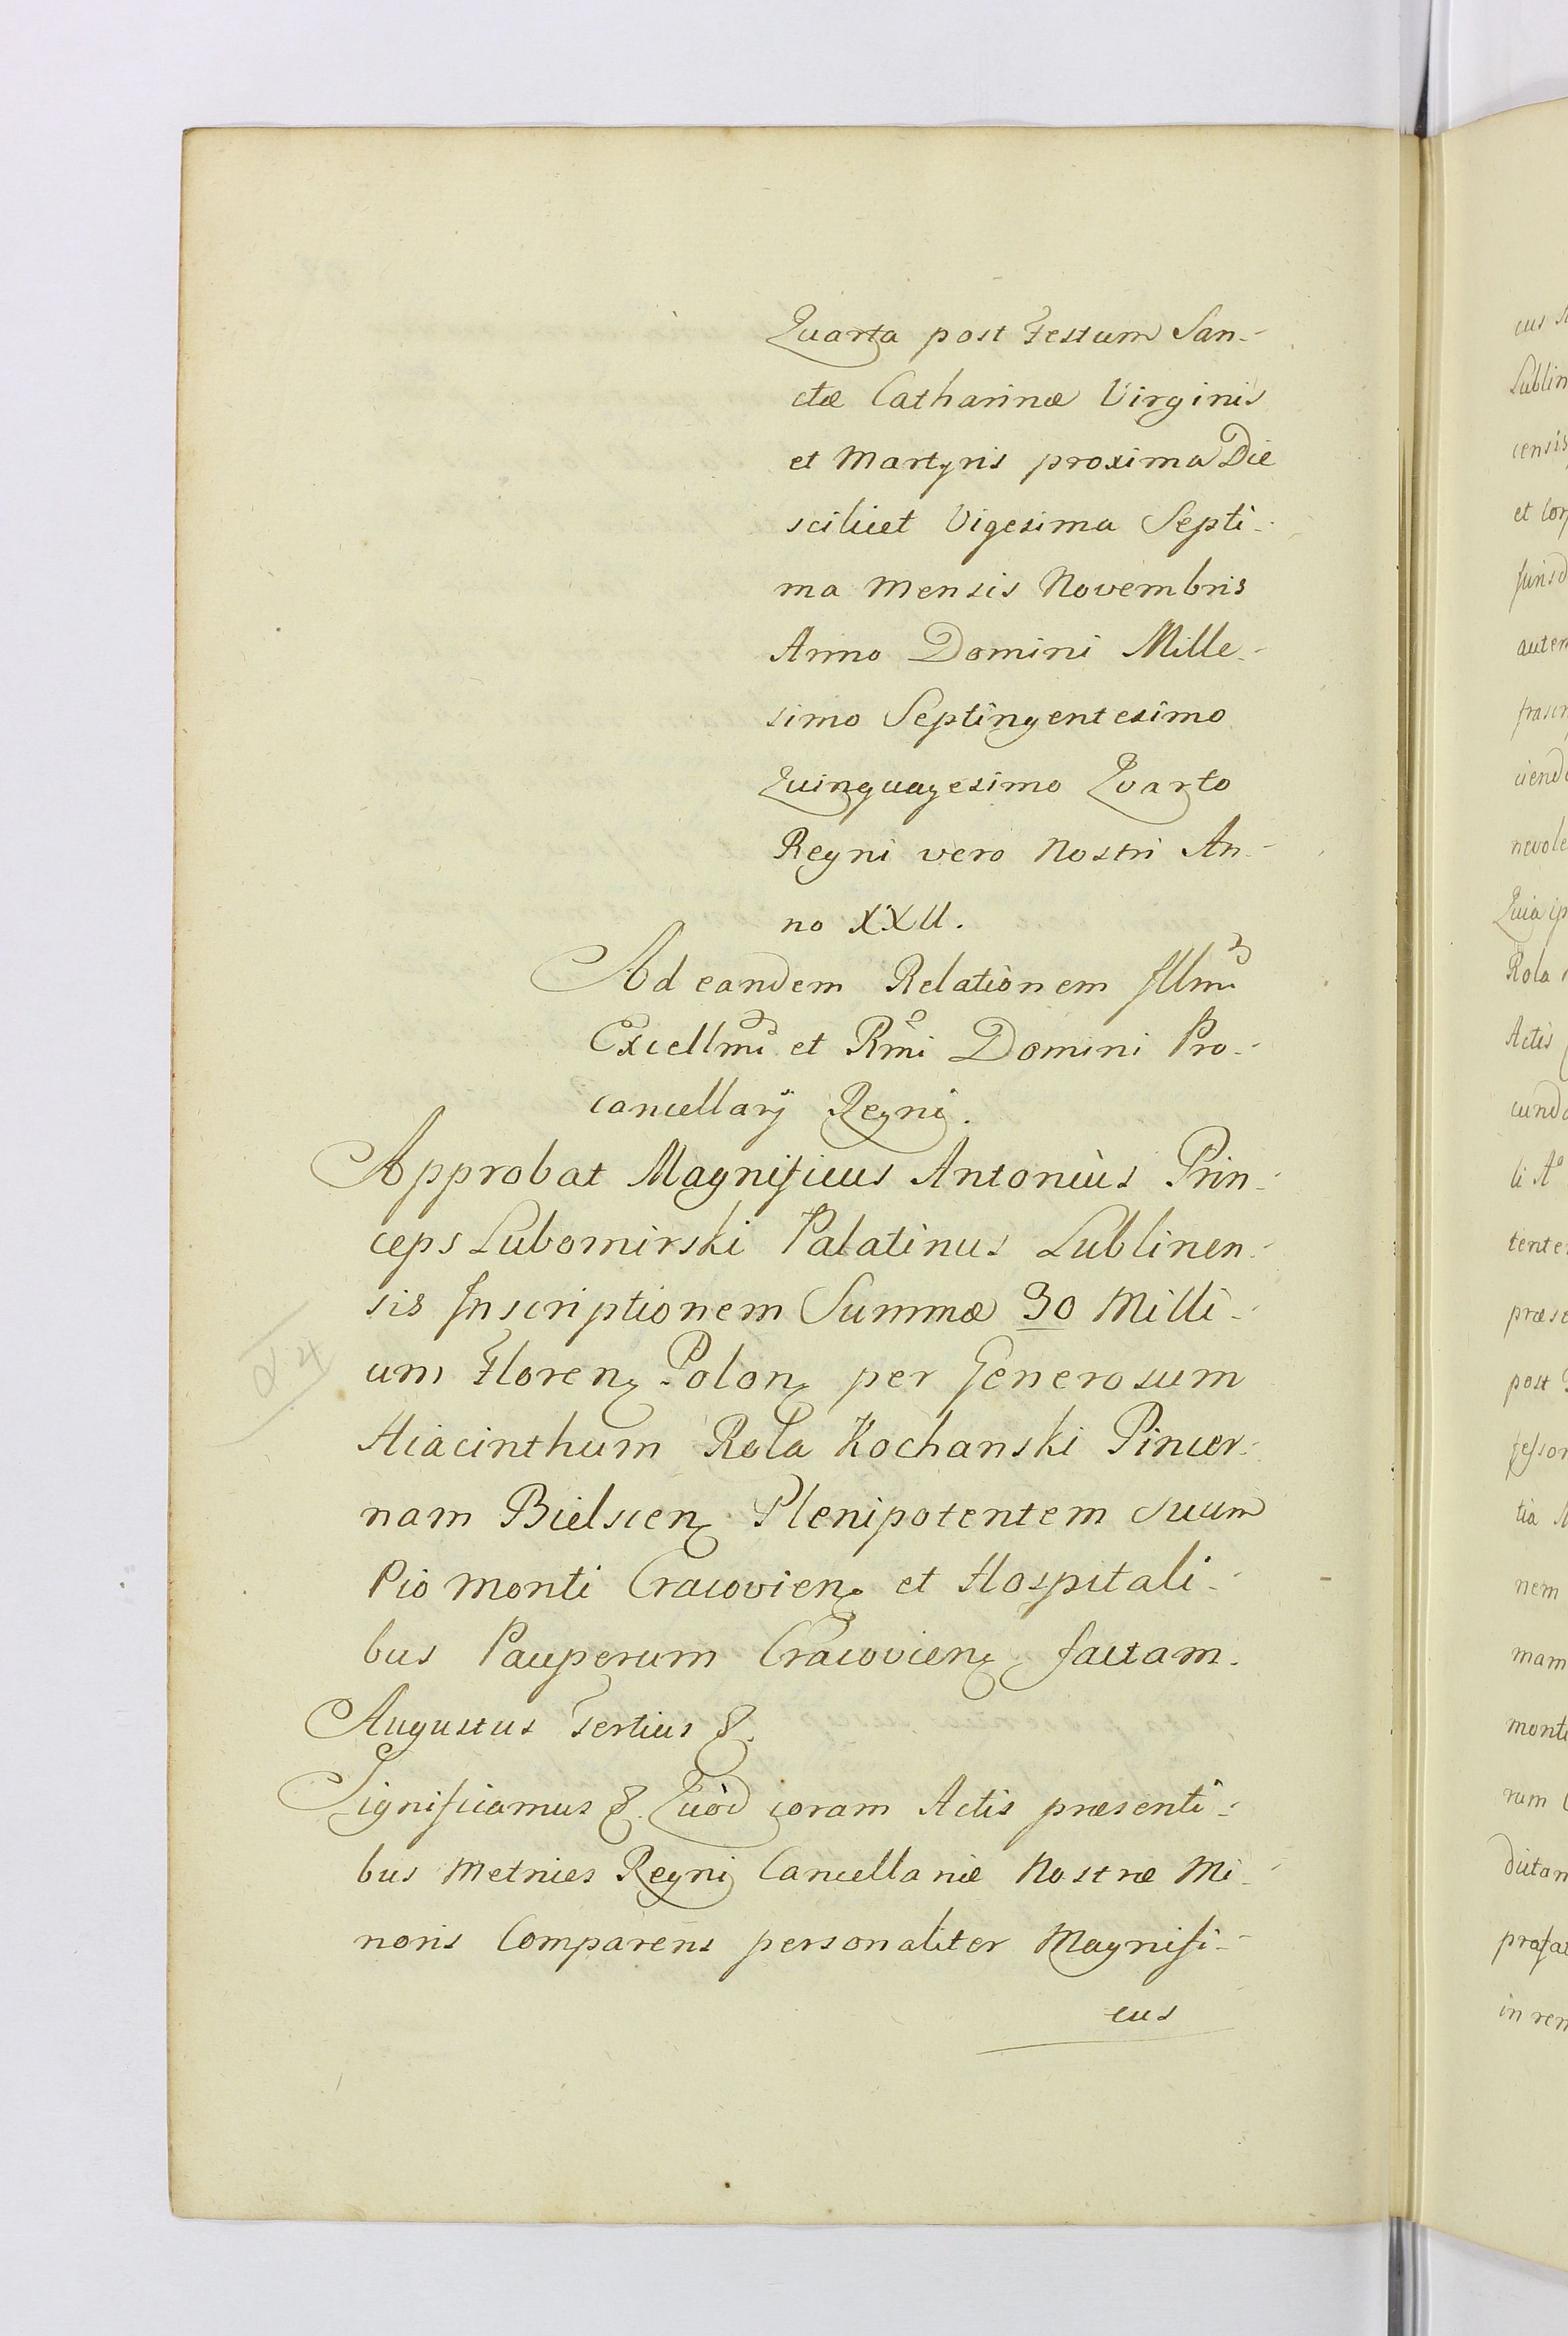 Quarta post Festum San-
ctæ Catharinæ Virginis
et Martyris proxima Die
scilicet Vigesima Septi-
ma Mensis Novembris
Anno Domini Mille-
simo Septingentesimo
Quinquagesimo Quarto
Regni vero Nostri An-
no XXII.
Ad eandem Relationem Illmi
Excellmi et Rmi Domini Pro-
cancellarij Regni.
Approbat Magnificus Antonius Prin-
ceps Lubomirski Palatinus Lublinen-
sis Inscriptionem Summæ 30 Milli-
um Floren. Polon. per Generosum
Hiacinthum Rola Kochanski Pincer-
nam Bielscen. Plenipotentem Suum
Pio Monti Cracovien. et Hospitali-
bus Pauperum Cracovien. factam.
Augustus Tertius &.
Significamus &. Quòd coram Actis præsenti-
bus Metrices Regni Cancellariæ Nostræ Mi-
noris Comparens personaliter Magnifi-
cus
cus
Lublin
censis
et
autem
nevole
Quia
Rola
Actis
li Aº
post
nem
mam
in rem